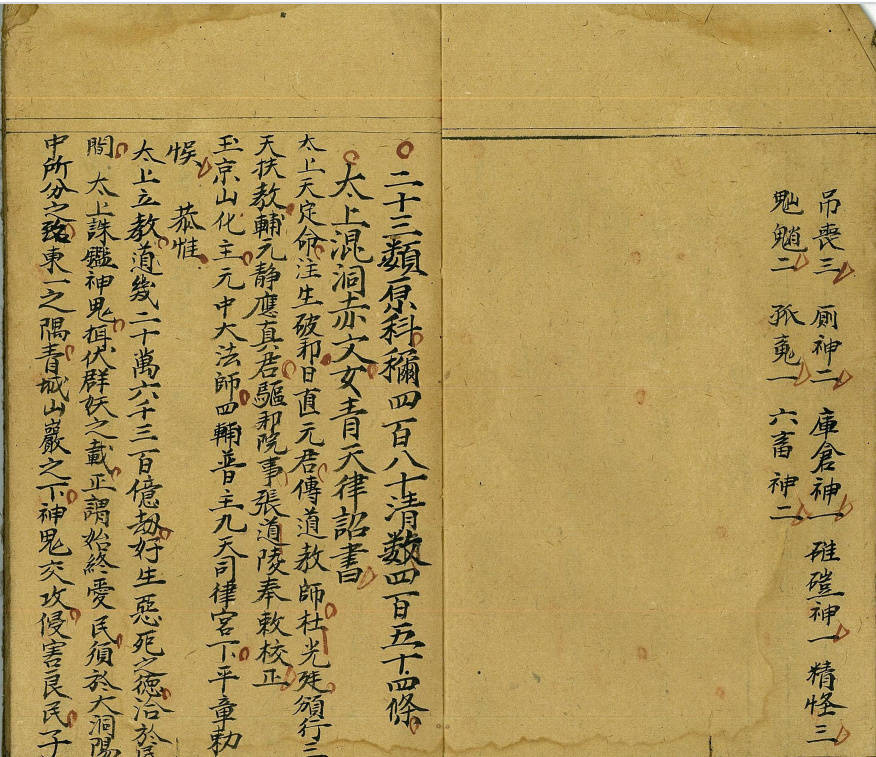 吊喪三 厠神二 庫倉神一 碓磑神一 精怪三
魈二 孤魂一 六畜神二
二十三類原科稱四百八十清数四百五十四條
太上混洞赤文女青天律詔書
太上天定命注生破邪日直元君傳道教師杜光庭頒行三
天扶教輔元静應真君驅邪院事張道陵奉敕校正
玉京山化主元中大法師四輔普主九天司律宮下平章勅
悞 恭惟
太上立教道幾二十萬六千三百億劫好生惡死之德洽於民
間 太上誅鑑神鬼㨄伏群妖之載正謂始終愛民須於大洞陽
中所分之臨東一之隅青城山巖之下神鬼交攻侵害良民子